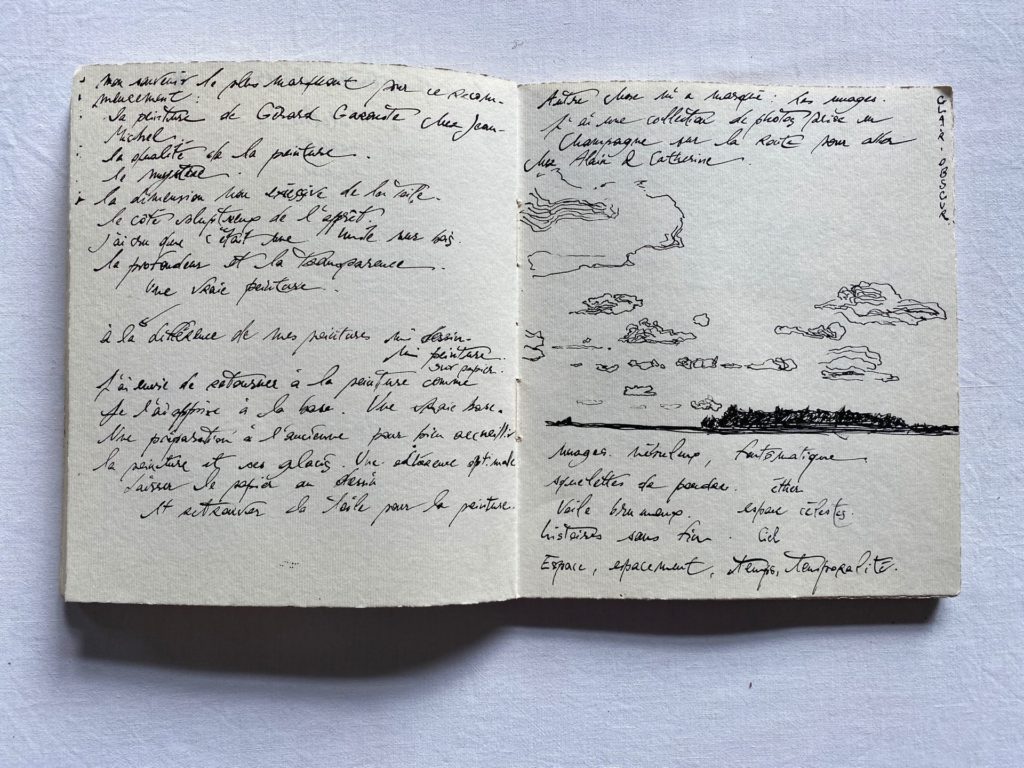 mon souvenir le plus marquant pour ce recom-
mencement :
la peinture de Gérard Garouste chez Jean-
Michel.
la qualité de la peinture.
le mystère.
la dimension non excessive de la toile.
le coté voluptueux de l'apprêt.
j'ai cru que c'était une huile sur bois.
la profondeur et la transparence.
Une vraie peinture.
à la différence de mes peintures ni dessin
ni peinture
sur papier.
J'ai envie de retourner à la peinture comme
je l'ai apprise à la base. Une vraie base.
Une préparation à l'ancienne pour bien accueillir
la peinture et ses glacis. Une adhérence optimale
Laisser le papier au dessin
et retrouver la toile pour la peinture.
Autre chose m'a marqué : les nuages.
J'ai une collection de photos prise en
Champagne sur la route pour aller
chez Alain & Catherine.
CLAIR OBSCUR.
nuages. nébuleux, fantomatique
squelettes de poudre. éther
Voile brumeux. espace célestes.
histoires sans fin. Ciel
Espace, espacement, temps, temporalité.